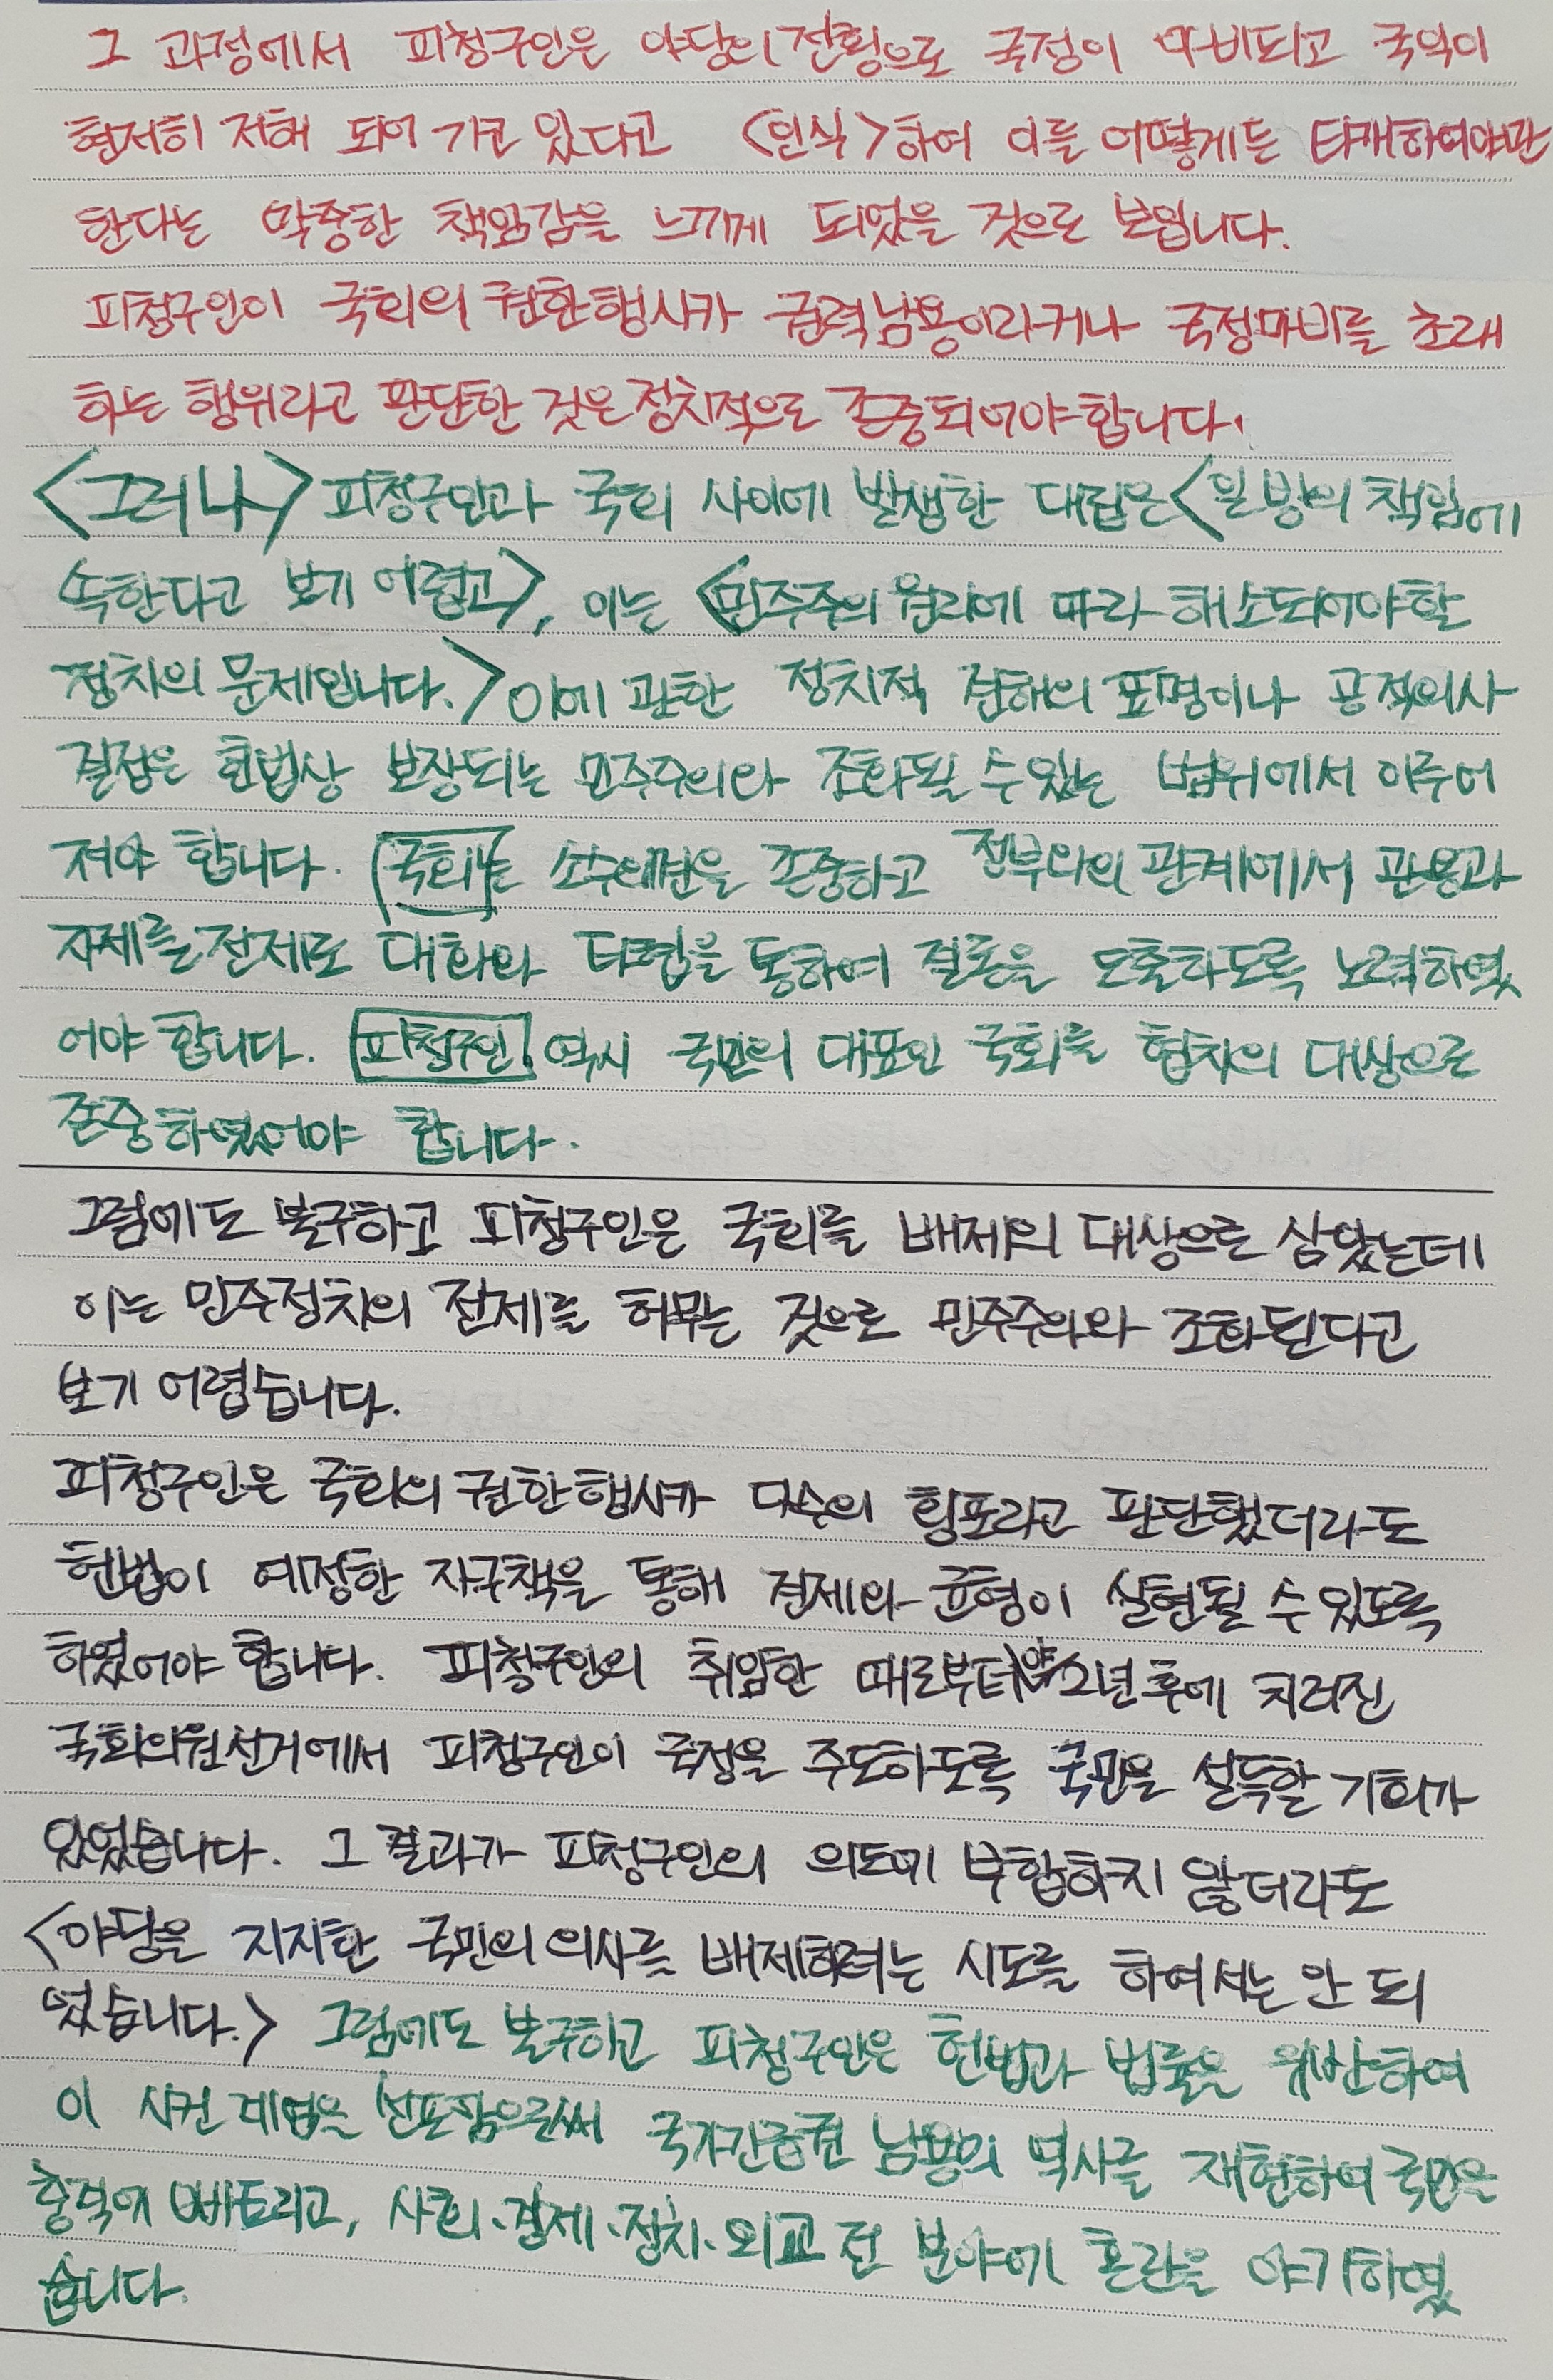 그 과정에서 피청구인은 야당의 전횡으로 국정이 마비되고 국익이
현저히 저해 되어 가고 있다고 <인식>하여 이를 어떻게든 타개하여야만
한다는 막중한 책임감을 느끼게 되었을 것으로 보입니다.
피청구인이 국회의 권한행사가 권력남용이라거나 국정마비를 초래
하는 행위라고 판단한 것은 정치적으로 존중되어야 합니다.
<그러나> 피청구인과 국회 사이에 발생한 대립은 <일방의 책임에
속한다고 보기 어렵고>, 이는 <민주주의 원리에 따라 해소되어야 할
정치의 문제입니다.> 이에 관한 정치적 견해의 표명이나 공적의사
결정은 헌법상 보장되는 민주주의와 조화될 수 있는 범위에서 이루어
져야 합니다. (국회)는 소수의견을 존중하고 정부와의 관계에서 관용과
자제를 전제로 대화와 타협을 통하여 결론을 도출하도록 노력하였
어야 합니다. 피청구인 역시 국민의 대표인 국회를 협치의 대상으로
존중하였어야 합니다.
그럼에도 불구하고 피청구인은 국회를 배제의 대상으로 삼았는데
이는 민주정치의 전제를 허무는 것으로 민주주의와 조화된다고
보기 어렵습니다.
피청구인은 국회의 권한행사가 다수의 횡포라고 판단했더라도
헌법이 예정한 자구책을 통해 견제와 균형이 실현될 수 있도록
하였어야 합니다. 피청구인의 취임한 때로부터 약 2년 후에 치러진
국회의원선거에서 피청구인이 국정을 주도하도록 국민을 설득할 기회가
있었습니다. 그 결과가 피청구인의 의도에 부합하지 않더라도
<야당을 지지한 국민의 의사를 배제하려는 시도를 하여서는 안 되
었습니다.> 그럼에도 불구하고 피청구인은 헌법과 법률을 위반하여
이 사건 계엄을 선포함으로써 국가긴급권 남용의 역사를 재현하여 국민을
충격에 빠트리고, 사회·경제·정치·외교 전 분야에 혼란을 야기하였
습니다.